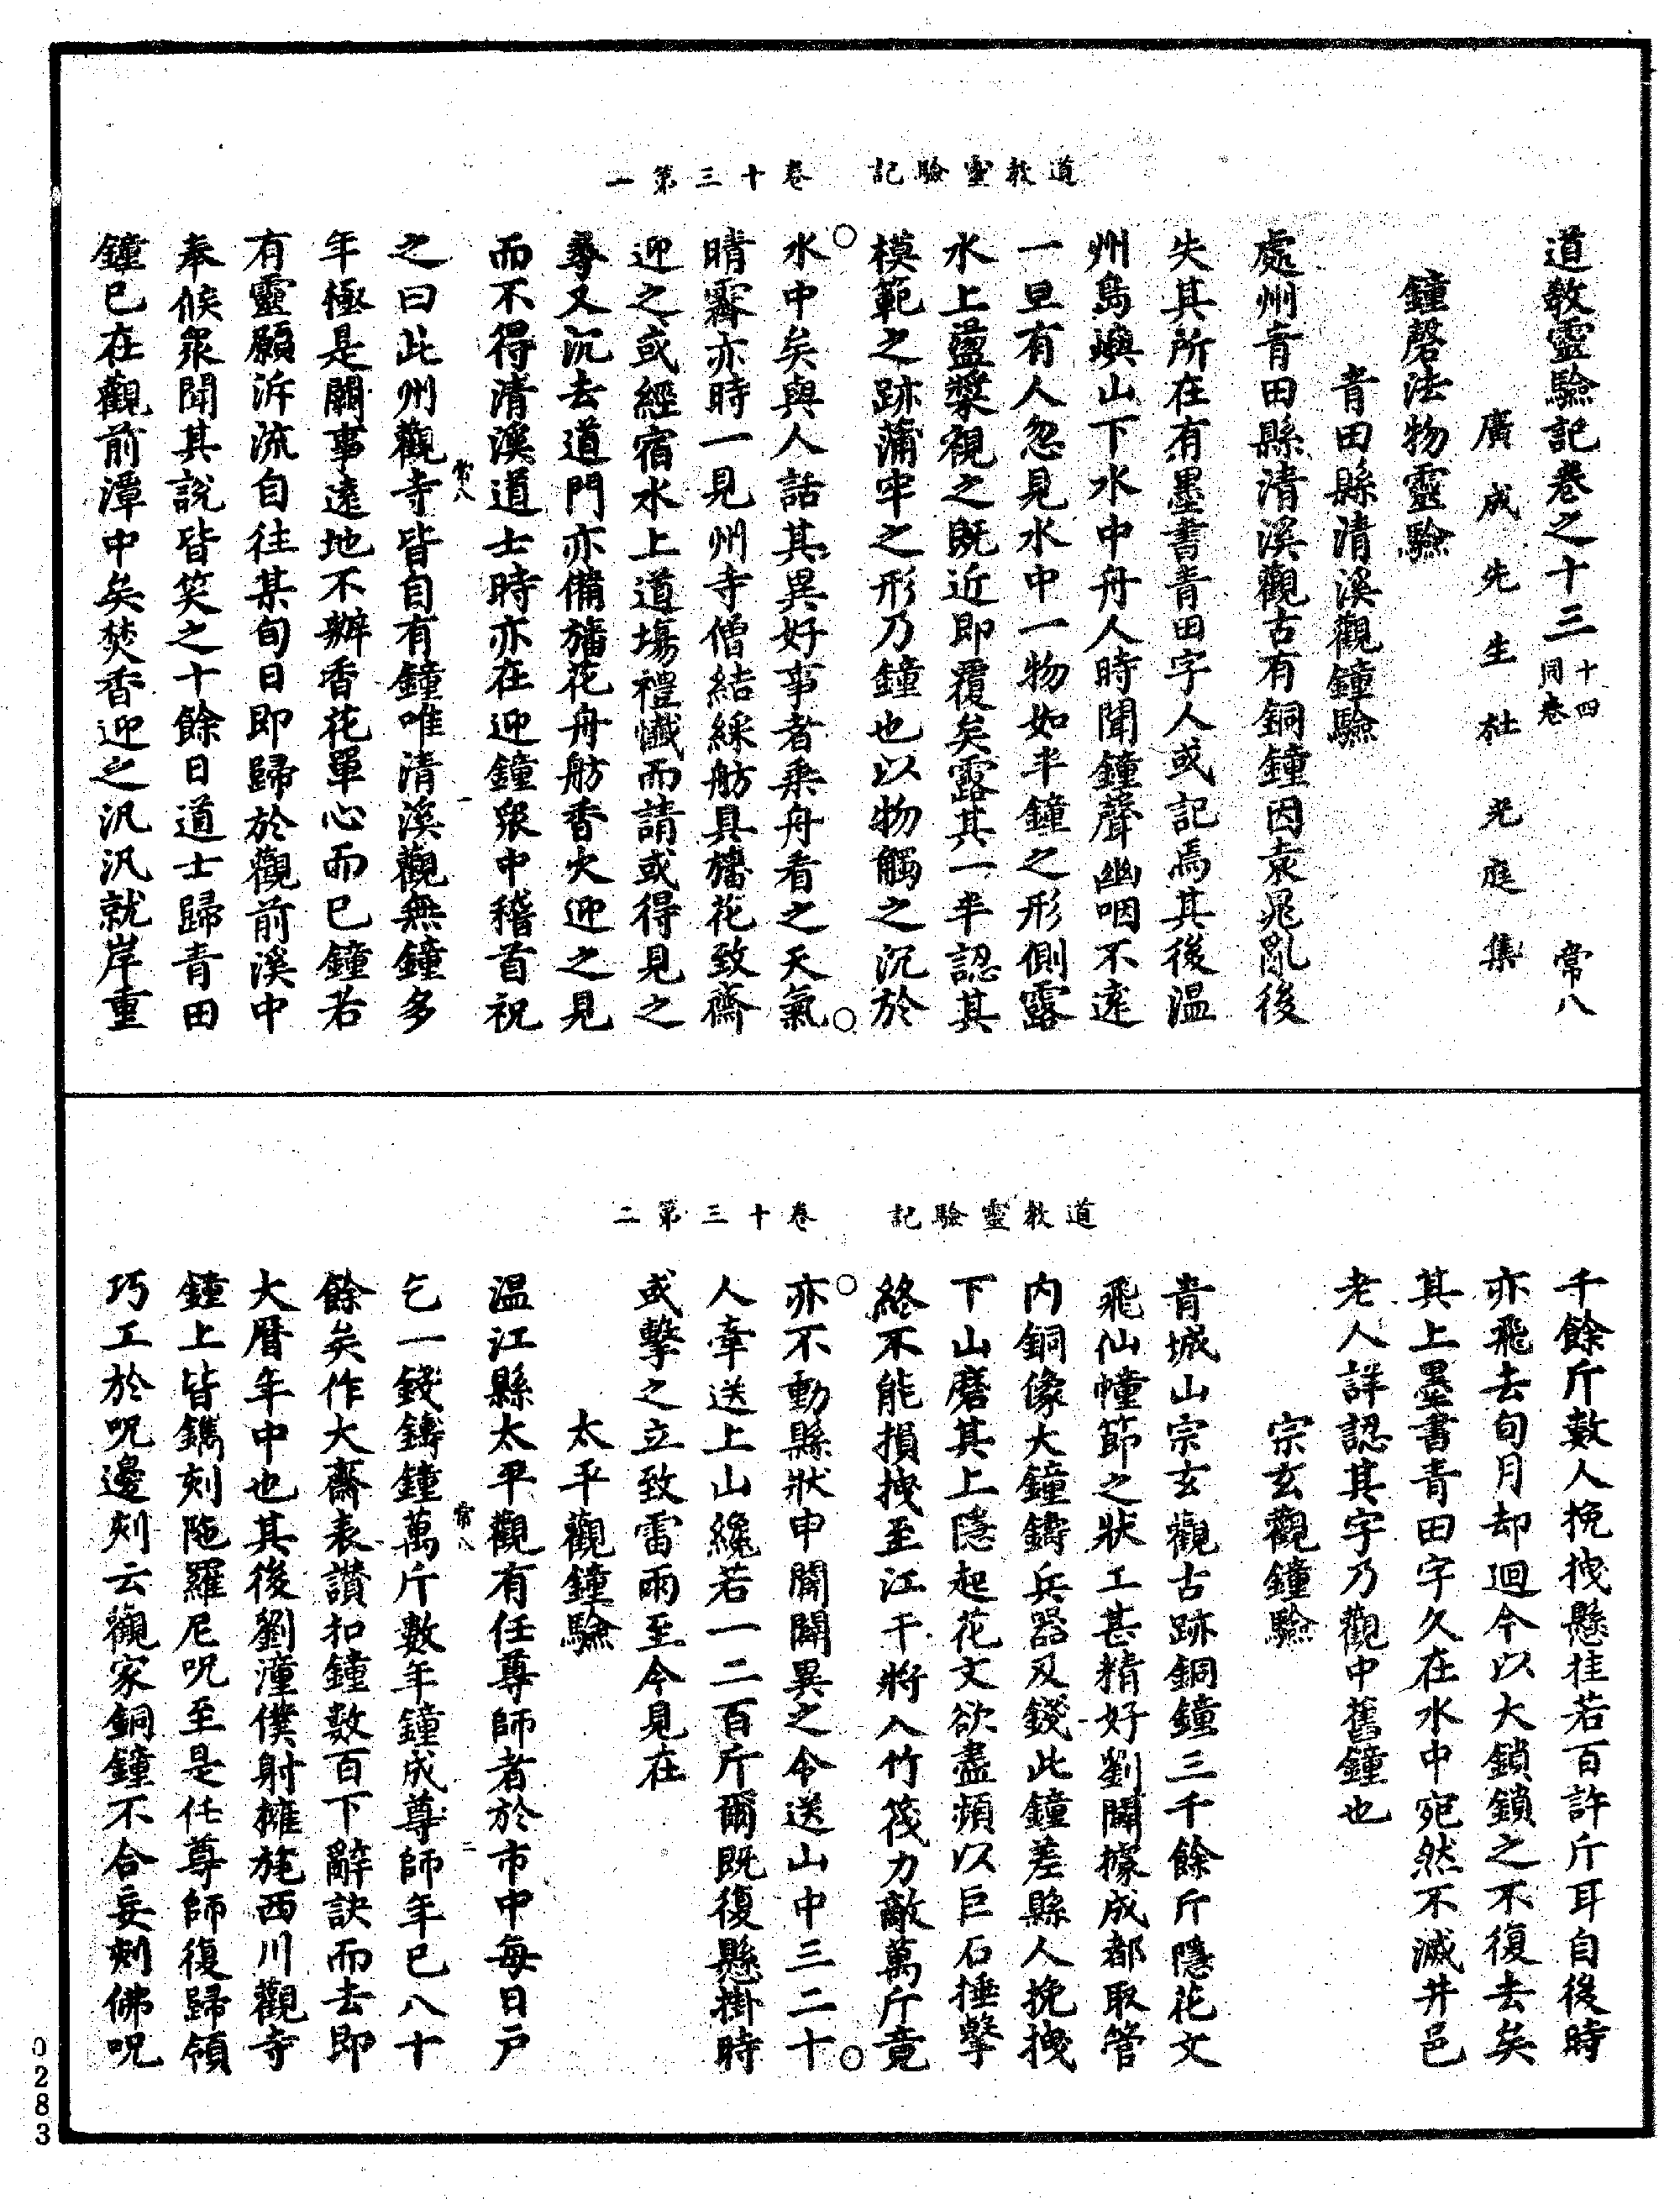 道教靈驗記　卷十三第一
道教靈驗記卷之十三十四同卷　常八
廣成先生杜光庭集
鐘磬法物靈驗
青田縣清溪觀鐘驗
處州青田縣清溪觀古有銅鐘因袁晁亂後
失其所在有墨書青田字人或記焉其後温
州島嶼山下水中舟人時聞鐘聲幽咽不遠
一旦有人忽見水中一物如半鐘之形側露
水上盪槳視之既近即覆矣露其一半認其
模範之跡蒲牢之形乃鐘也以物觸之沉於
水中矣與人話其異好事者乘舟看之天氣
晴霽亦時一見州寺僧結綵舫具旛花致齋
迎之或經宿水上道場禮懺而請或得見之
尋又沉去道門亦備旛花舟舫香火迎之見
而不得清溪道士時亦在迎鐘衆中稽首祝
常八　一
之曰此州觀寺皆自有鐘唯清溪觀無鐘多
年極是闕事遠地不辦香花單心而已鐘若
有靈願泝流自往某旬日即歸於觀前溪中
奉候衆聞其說皆笑之十餘日道士歸青田
鐘已在觀前潭中矣焚香迎之汎汎就岸重
道教靈驗記　卷十三第二
千餘斤數人挽拽懸挂若百許斤耳自後時
亦飛去旬月却迴今以大鎖鎖之不復去矣
其上墨書青田字久在水中宛然不滅井邑
老人詳認其字乃觀中舊鐘也
宗玄觀鐘驗
青城山宗玄觀古跡銅鐘三千餘斤隱花文
飛仙幢節之狀工甚精好劉闢據成都取管
内銅像大鐘鑄兵器及錢此鐘差縣人挽拽
下山磨其上隱起花文欲盡頻以巨石捶擊
終不能損拽至江干將入竹筏力敵萬斤竟
亦不動縣狀申闢闢異之令送山中三二十
人牽送上山纔若一二百斤爾既復懸掛時
或擊之立致雷雨至今見在
太平觀鐘驗
温江縣太平觀有任尊師者於市中每日戶
常八　二
乞一錢鑄鐘萬斤數年鐘成尊師年已八十
餘矣作大齋表讃扣鐘數百下辭訣而去即
大曆年中也其後劉潼僕射擁旄西川觀寺
鐘上皆鐫刻陁羅尼呪至是任尊師復歸領
巧工於呪邊刻云觀家銅鐘不合妄刻佛呪
0283